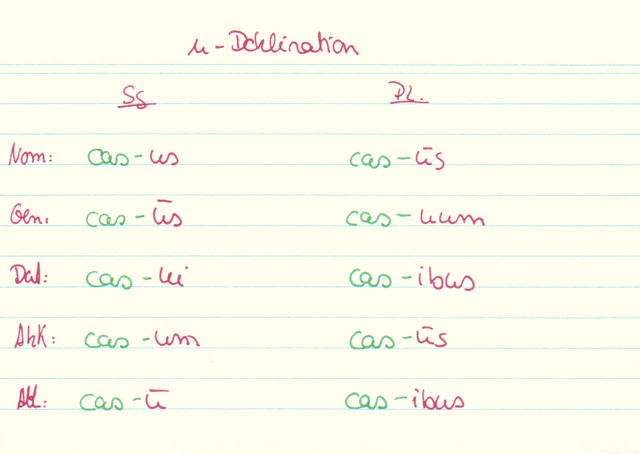 u-Deklination
Sg Pl.
Nom: cas-us cas-ūs
Gen: cas-ūs cas-uum
Dat: cas-ui cas-ibus
Akk: cas-um cas-ūs
Abl: cas-ū cas-ibus